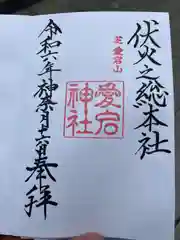 伏火之総本社
芝愛宕山
愛宕神社
令和六年神奈月十六日奉拝